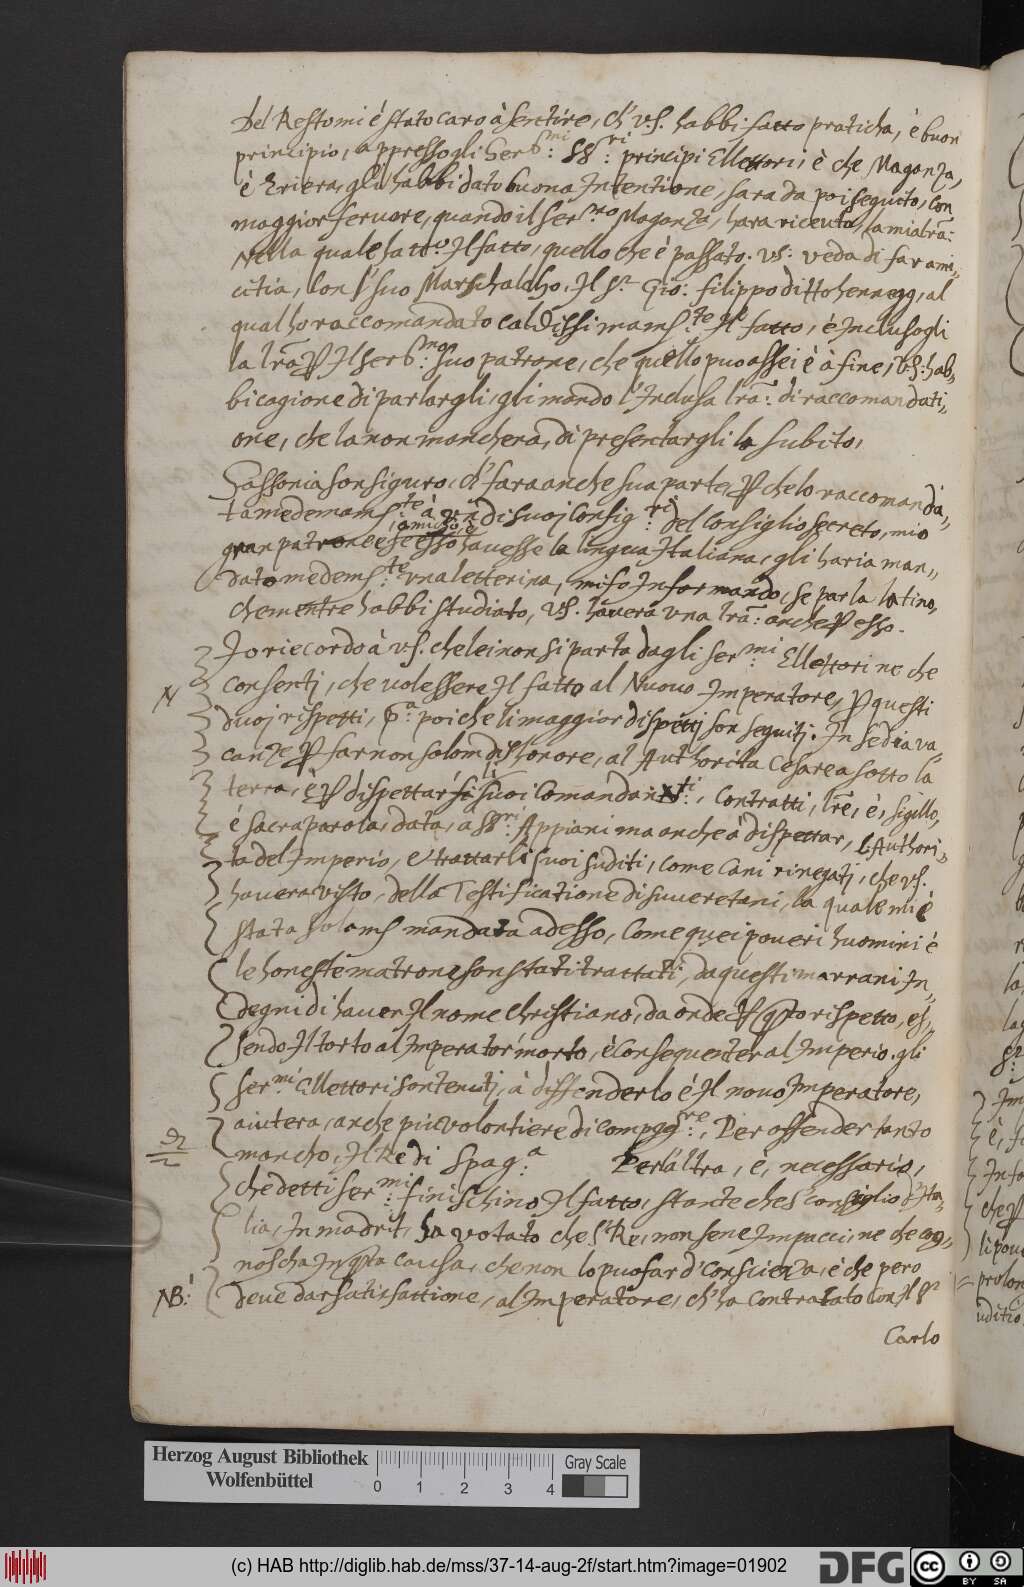 Del Resto mi è stato caro à sentire, ch' v.s. habbi fatto praticha, è buon
principio, appresso gli Ser.mi: SS.ri: principi Elletori, è che Maganza,
è Triera, gli habbi dato buona Intentione, sara da poi seguito, con
maggior fervore, quando il Ser.mo Maganza, hara riceuto, la mia lra:
Nella quale hatto Il fatto, quello che è passato. v.s: veda di far ami„
citia, con l' suo Marschalcho, Il S.r Gio: filippo di Hohenegg, al
qual ho raccomandato caldissimams.te Il fatto, è Inclusogli
la lra p Il Ser.mo: suo patrone, che quello puo assei è à fine, v.s: hab„
bi cagione di parlargli, gli mando l' Inclusa lra: di raccomandati„
one, che la non manchera, di presentargli la subito,
Sassonia son siguro, ch' fara anche sua parte, p che lo raccomanda„
ta medemams.te à un di suoj Consig.ri: del Consiglio secreto, mio
gran patrone è amicho, è se esso havesse la lingua Italiana, gli haria man„
dato medems.te una letterina, mi fo Informando, se parla latino,
che mentre habbi studiato, v.s. havera una lra: anche p esso.
Io riecordo à v.s. che lei non si parta dagli ser.mi Ellettori ne che
N
consentj, che volessere Il fatto al Nuovo Imperatore, p questi
duoj rispetti, p.a: poiche li maggior dispettj son seguitj. In sedia va„
canze p far non solom dishonore, al Authorita Cesarea sotto la
terra, è p dispettar li suoi Comandan.ti:, Contratti, lre, è, sigillo,
è sacra parola, data, à SS.ri: Appiani ma anche à dispettar, l'Authori„
ta del Imperio, e trattar li suoi suditi, come Cani rinegatj, che v.s.
havera visto, della Testificatione di suveretani, la quale mi è
stata solams mandata adesso, Come quei poveri huomini è
le honeste matrone son stati trattati, da questi marrani In„
degni di haver Il nome Christiano, da onde p questo rispetto, es„
sendo Il torto al Imperator morto, è Consequenter al Imperio. gli
Ser.mi Ellettori son tenutj, à diffenderlo è Il novo Imperatore,
aiutera, anche piu volontiere di Compag.re:, Per offender tanto
mancho, Il Re di Spag.a: Per l'altra, è, necessario,
che detti ser.mi: finischino Il fatto, stante che l' consiglio d'Ita„
lia, In madrit, ha votato che l' Re, non se ne Impacci, ne che cog„
noscha In questa causa, che non lo puo far d' Conscienza, è che pero
NB:
deue dar satisfattione, al Imperatore, ch' ha Contratato Con Il S.r
Carlo
Herzog August Bibliothek
Wolfenbüttel
0 1 2 3 4
Gray Scale
(c) HAB http://diglib.hab.de/mss/37-14-aug-2f/start.htm?image=01902
DFG
cc BY SA